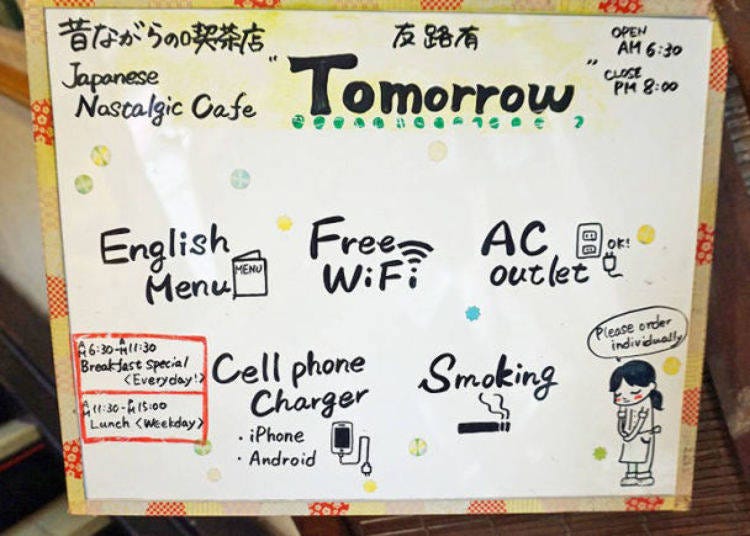 昔ながらの喫茶店
友路有
OPEN
AM 6:30
CLOSE
PM 8:00
Japanese
Nastalgic Cafe
"Tomorrow"
English
Menu
MENU
Free
WiFi
AC
outlet
OK!
AM 6:30-AM 11:30
Breakfast special
<Everyday!>
AM 11:30-PM 15:00
Lunch <Weekday>
Cell phone
Charger
・iPhone
・Android
Smoking
Please order
individually